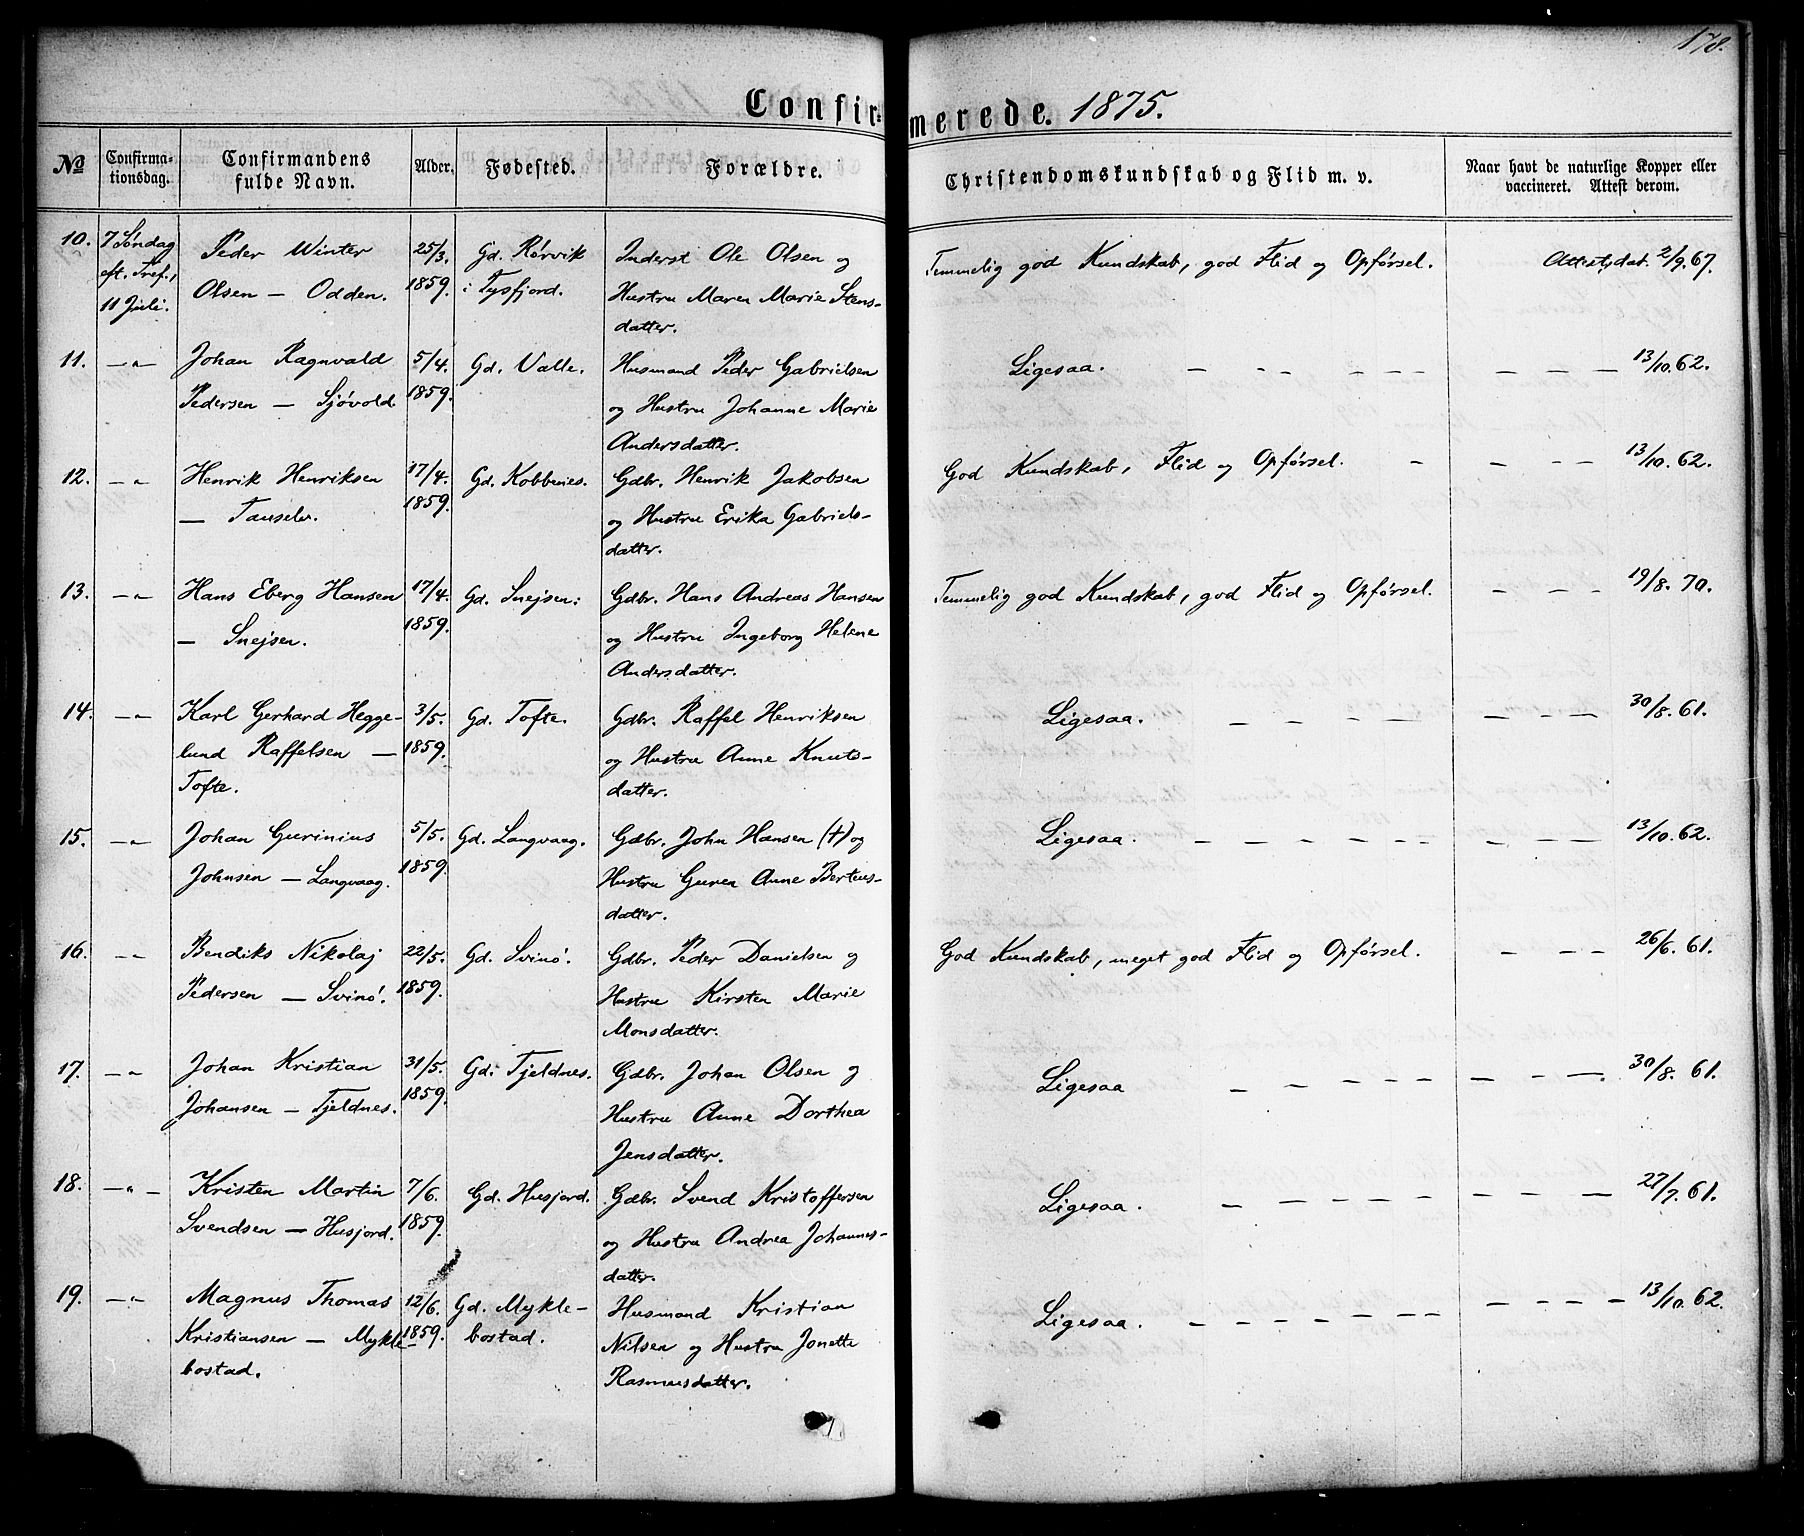 178.
Confirmerede. 1875.
No
Confirmationsdag.
Confirmandens fulde Navn.
Alder.
Fødested.
Forældre.
Christendomskundskab og Flid m. v.
Naar havt de naturlige Kopper eller vaccineret. Attest derom.
10. 7 Søndag Peder Winter 25/3. Gd. Rørvik Inderst Ole Olsen og Temmelig god Kundskab, god Flid og Opførsel. Attest, dat. 2/9. 67.
eft. Tref., Olsen — Odden. 1859. i Tysfjord. Hustru Maren Marie Stens-
11 Juli. datter.
11. —„— Johan Ragnvald 5/4. Gd. Valle. Husmand Peder Gabrielsen Ligesaa. — — — — — — — — — 13/10. 62.
Pedersen — Sjøvold 1859. og Hustru Johanne Marie
Andersdatter.
12. —„— Henrik Henriksen 17/4. Gd. Kobbenes. Gdbr. Henrik Jakobsen God Kundskab, Flid og Opførsel. — — — — 13/10. 62.
— 1859. og Hustru Erika Gabriels-
datter.
13. —„— Hans Eberg Hansen 17/4. Gd. Snejsen: Gdbr. Hans Andreas Hansen Temmelig god Kundskab, god Flid og Opførsel. — — — 19/8. 70.
— Snejsen. 1859. og Hustru Ingeborg Helene
Andersdatter.
14. —„— Karl Gerhard Hegge- 3/5. Gd. Tofte. Gdbr. Raffel Henriksen Ligesaa. — — — — — — — — 30/8. 61.
lund Raffelsen — 1859. og Hustru Anne Knuts-
Tofte. datter.
15. —„— Johan Gurinius 5/5. Gd. Langvaag. Gdbr. John Hansen (†) og Ligesaa. — — — — — — — — — 13/10. 62.
Johnsen — Langvaag. 1859. Hustru Guren Anne Berteus-
datter.
16. —„— Bendiks Nikolaj 22/5. Gd. Svinø. Gdbr. Peder Danielsen og God Kundskab, meget god Flid og Opførsel. — — — 26/6. 61.
Pedersen — Svinø. 1859. Hustru Kirsten Marie
Monsdatter.
17. —„— Johan Kristian 31/5. Gd. Tjeldnes. Gdbr. Johan Olsen og Ligesaa — — — — — — — — 30/8. 61.
Johansen — Tjeldnes. 1859. Hustru Anne Dorthea
Jensdatter.
18. —„— Kristen Martin 7/6. Gd. Husjord. Gdbr. Svend Kristoffersen Ligesaa. — — — — — — — — — 27/7. 61.
Svendsen — Husjord. 1859. og Hustru Andrea Johannes-
datter.
19. —„— Magnus Thomas 12/6. Gd. Mykle- Husmand Kristian Ligesaa. — — — — — — — — — — 13/10. 62.
Kristiansen — Mykle- 1859. bostad. Nilsen og Hustru Jonette
bostad. Rasmusdatter.